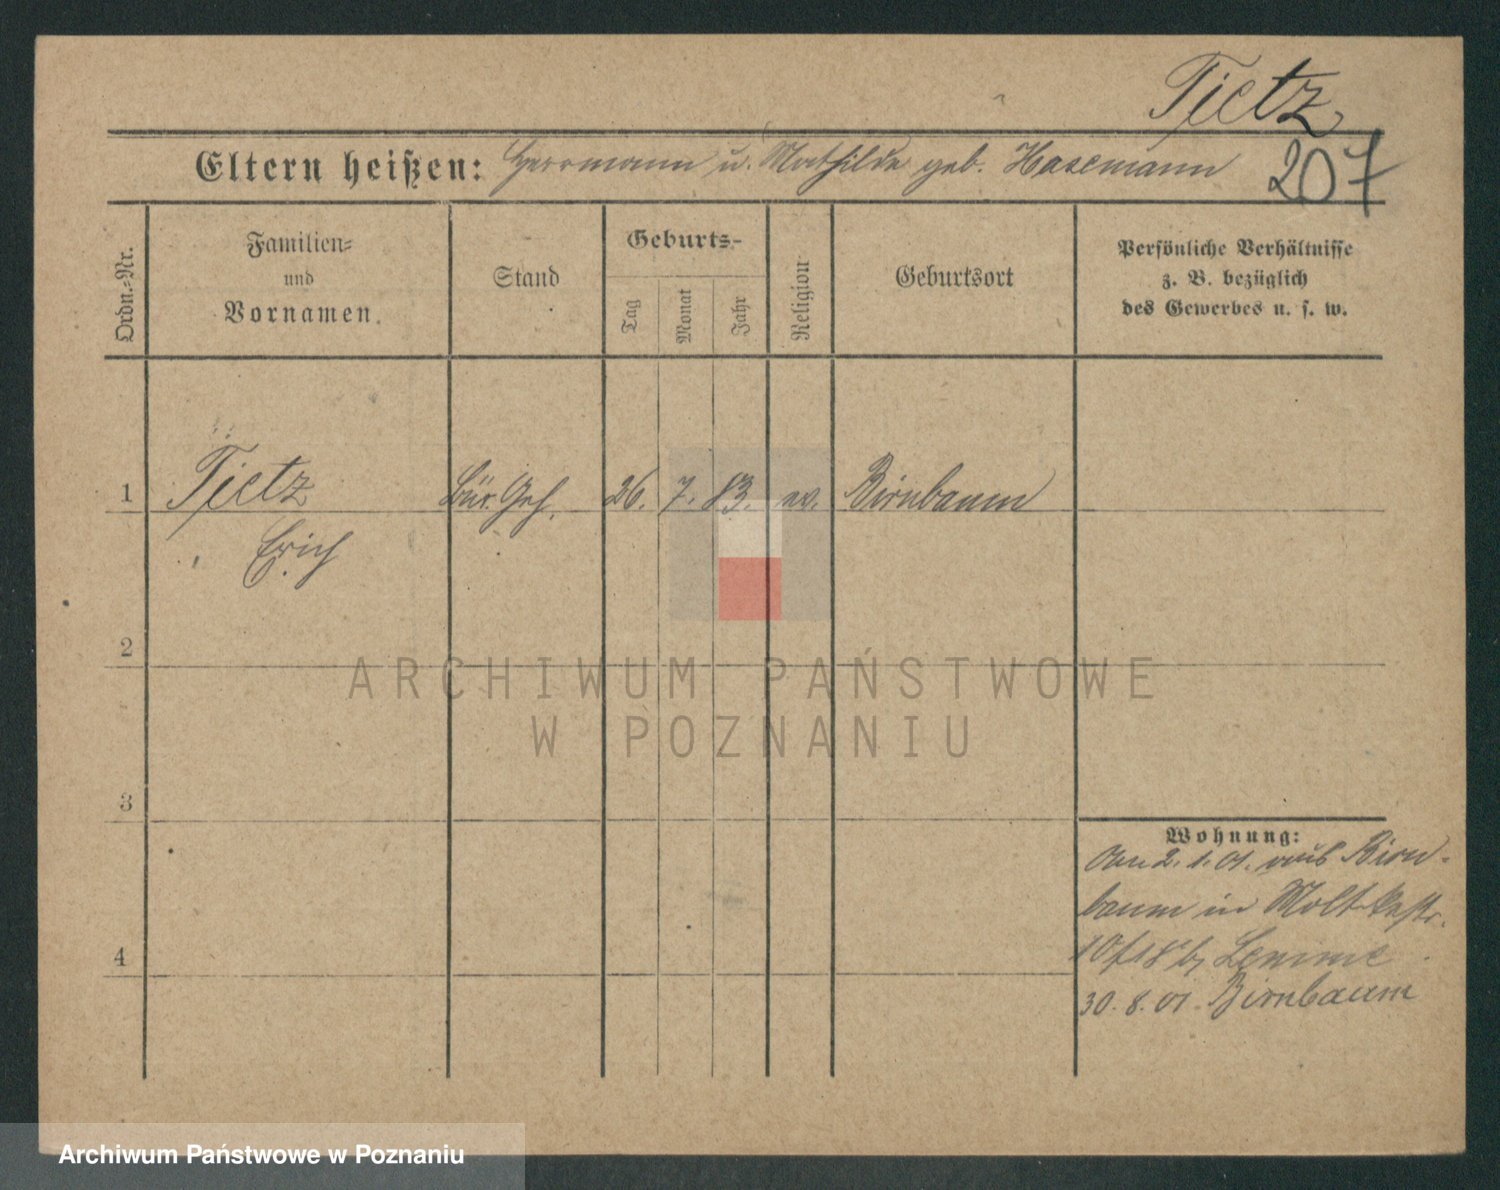 Tietz
207
Eltern heißen: Herrmann u. Mathilde geb. Hasemann
Ordn.-Nr.
Familien-
und
Vornamen.
Stand
Geburts-
Tag
Monat
Jahr
Religion
Geburtsort
Persönliche Verhältnisse
z. B. bezüglich
des Gewerbes u. s. w.
1 Tietz Bür. Geh. 26. 7. 83. ev. Birnbaum
Erich
2
ARCHIWUM PAŃSTWOWE
W POZNANIU
3
Wohnung:
2. 1. 01. aus Birn-
baum in Moltkestr.
4
30. 8. 01. Birnbaum
Archiwum Państwowe w Poznaniu